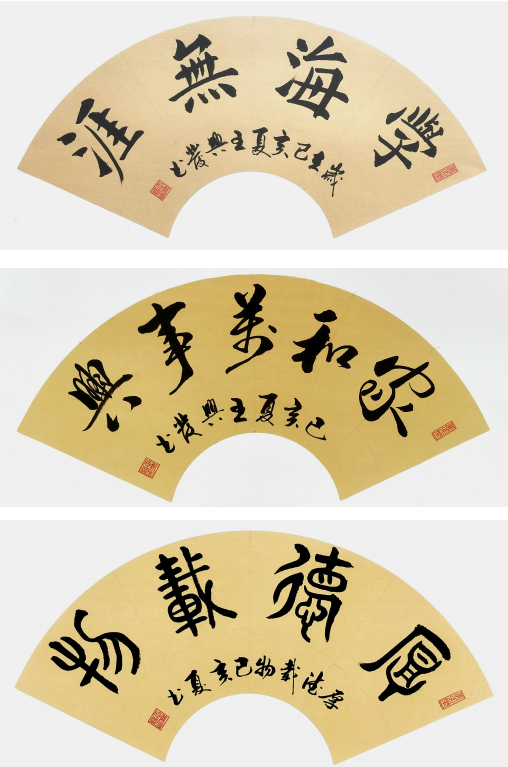 學海無涯
歲在己亥夏王興發书
家和萬事興
己亥夏王興發书
厚德載物
厚德載物己亥夏书